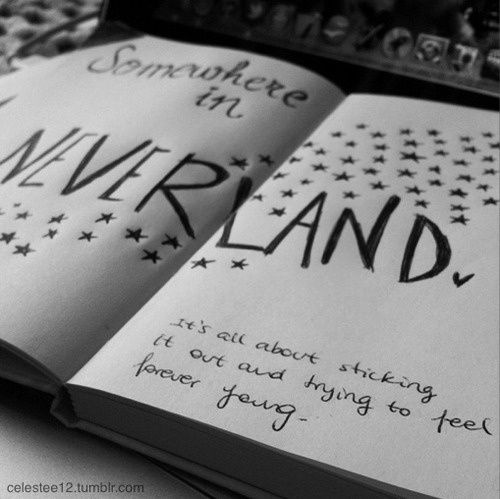 Somewhere
in
NEVERLAND
It's all about sticking
it out and trying to feel
forever young.
celestee12.tumblr.com